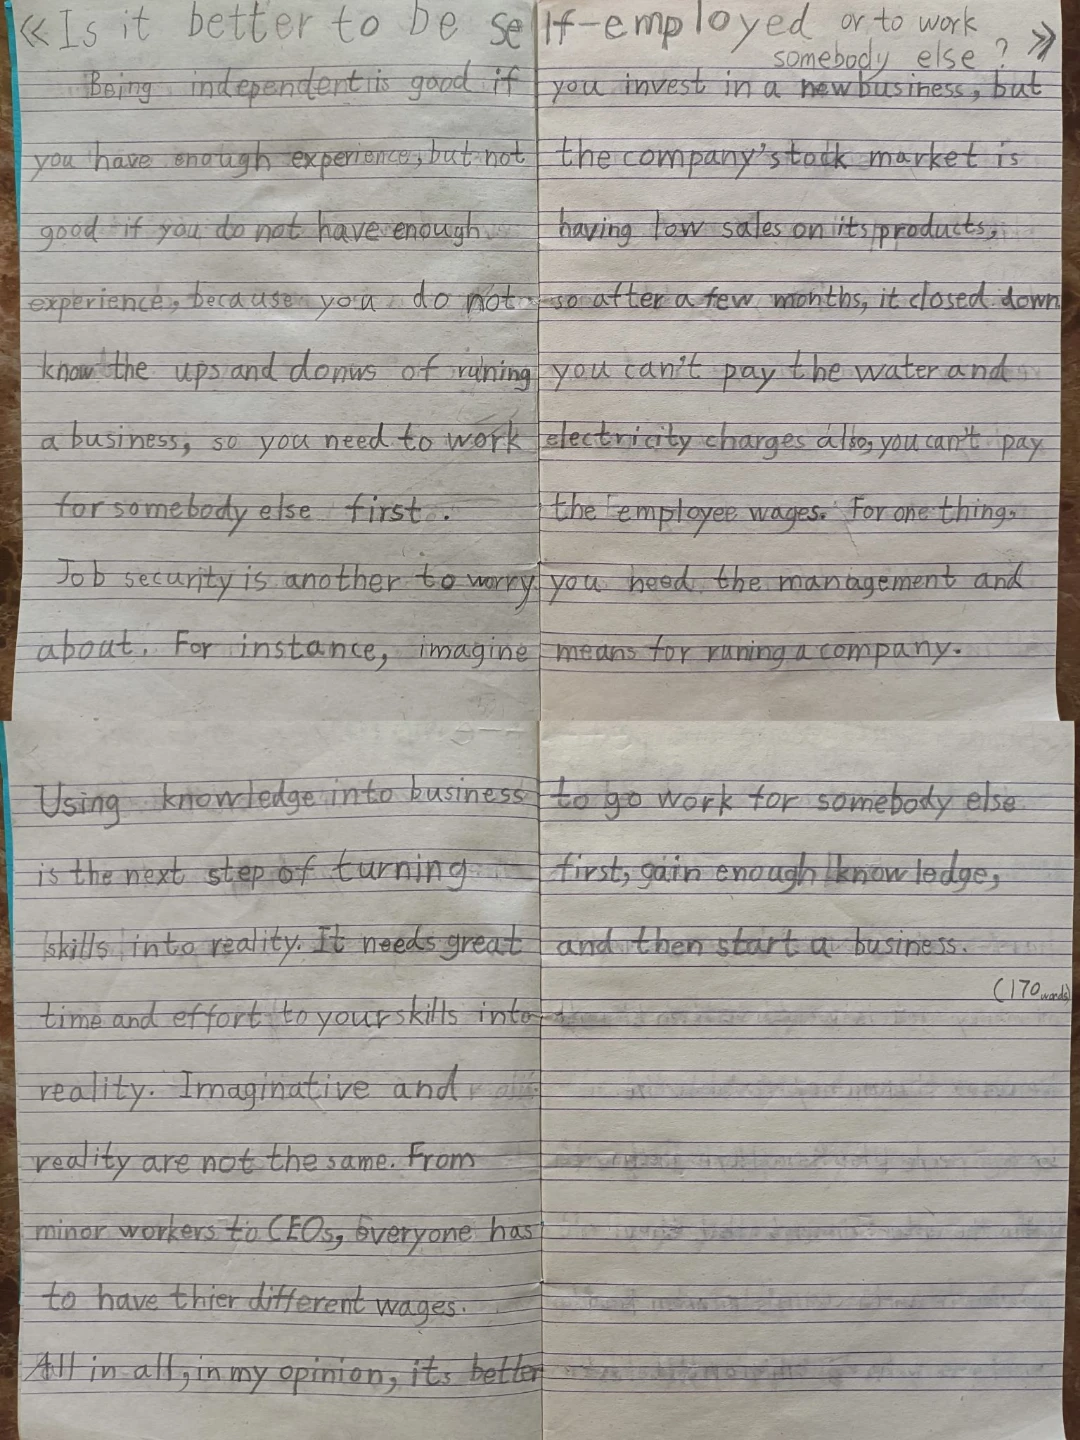 ≪Is it better to be self-employed or to work
somebody else?≫
Being independent is good if
you have enough experience, but not
good if you do not have enough
experience, because you do not
know the ups and donws of runing
a business, so you need to work
for somebody else first.
Job security is another to worry
about. For instance, imagine
you invest in a new business, but
the company's tock market is
having low sales on its products,
so after a few months, it closed down
you can't pay the water and
electricity charges also, you can't pay
the employee wages. For one thing,
you need the management and
means for runing a company.
Using knowledge into business
is the next step of turning
skills into reality. It needs great
time and effort to your skills into
reality. Imaginative and
reality are not the same. From
minor workers to CEOs, Everyone has
to have thier different wages.
All in all, in my opinion, its better
to go work for somebody else
first, gain enough knowledge,
and then start a business.
(170 words)